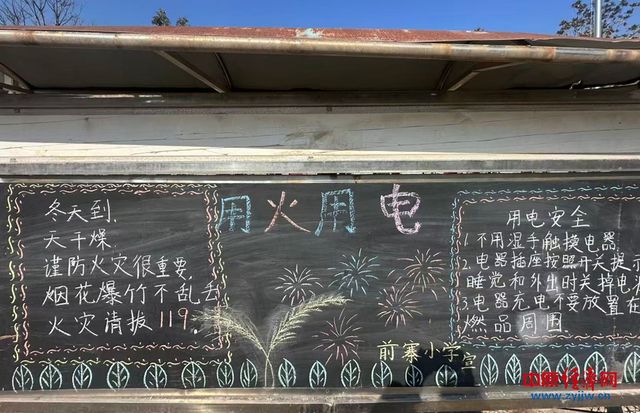 冬天到,
天干燥,
谨防火灾很重要,
烟花爆竹不乱丢
火灾请拔119.
用火用电
用电安全
1. 不用湿手触摸电器
2. 电器插座按照开关提示
睡觉和外出时关掉电
3 电器充电不要放置在
燃品周围.
前寨小学宣
中原经济网
www.zyjjw.cn